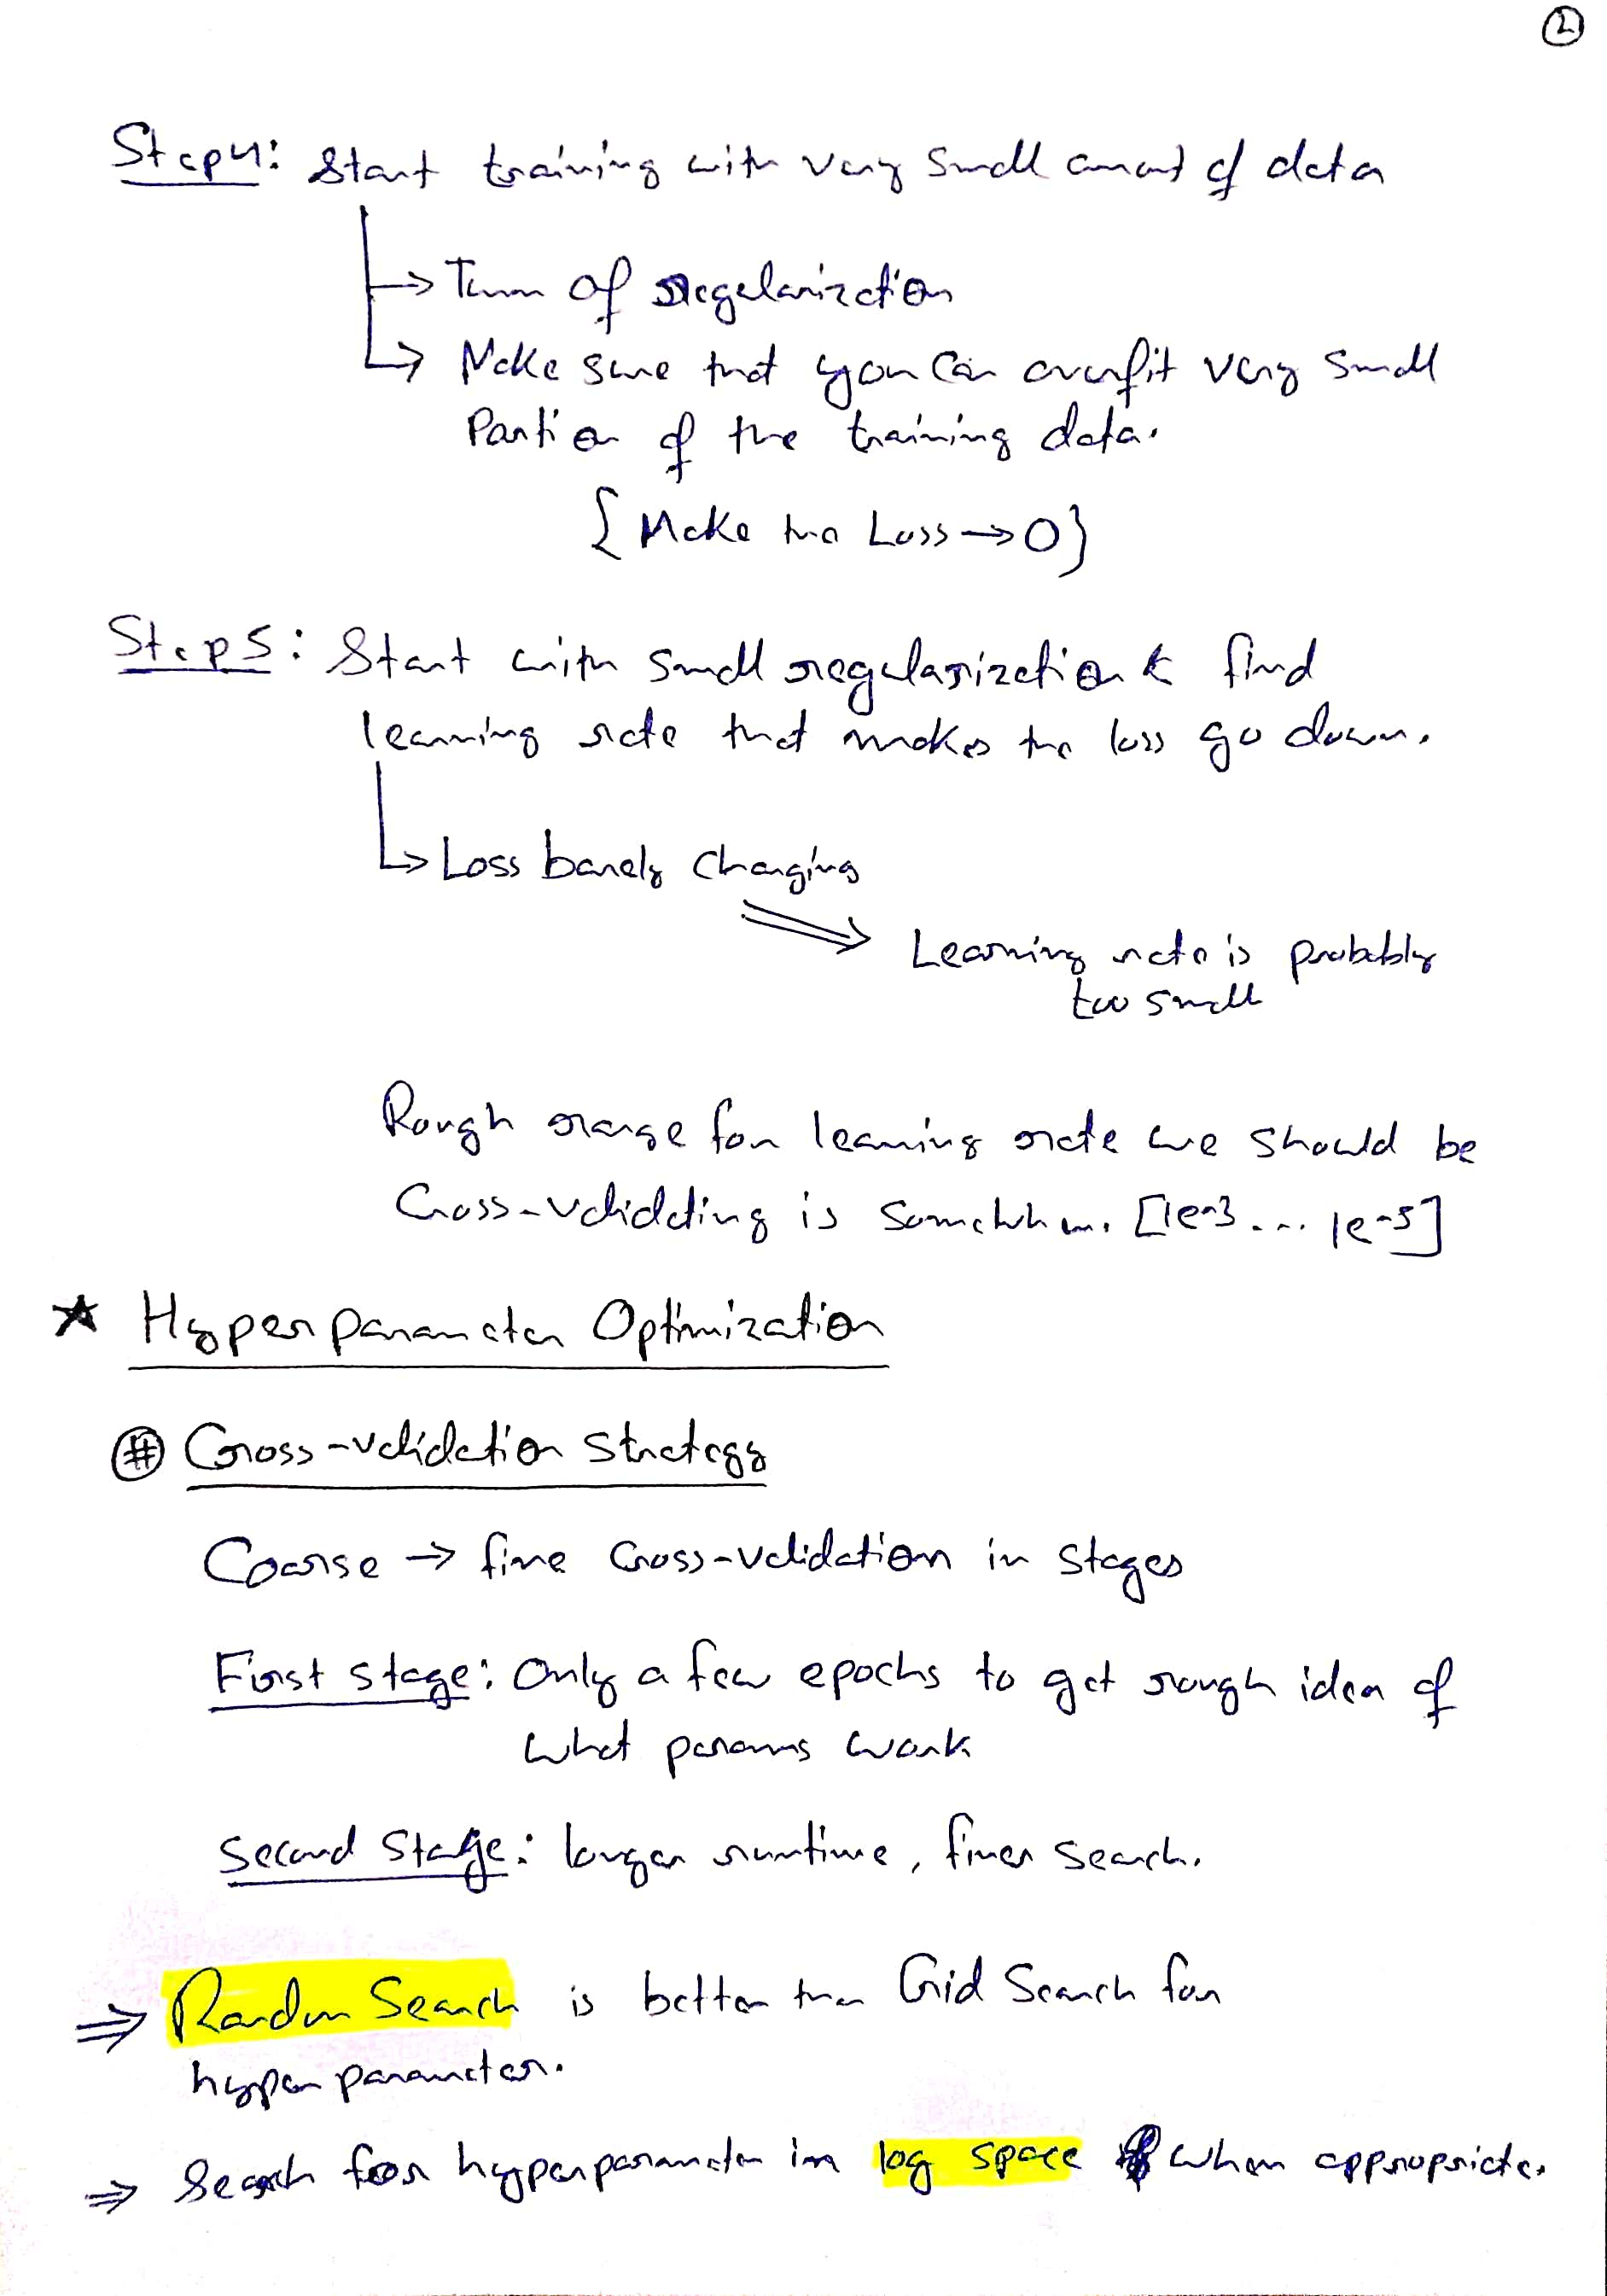 2
Step 4: Start training with very small amount of data
→ Turn of regularization
→ Make sure that you can overfit very small
Portion of the training data.
{Make the Loss → 0}
Step 5: Start with small regularization & find
learning rate that makes the loss go down.
→ Loss barely changing
⇒ Learning rate is probably
too small
Rough range for learning rate we should be
Cross-validating is somewhere [1e-3 ... 1e-5]
★ Hyperparameter Optimization
# Cross-validation Strategy
Coarse → fine cross-validation in stages
First stage: Only a few epochs to get rough idea of
what params work
Second Stage: longer runtime, finer search.
⇒ Random Search is better than Grid Search for
hyperparameter.
⇒ Search for hyperparameter in log space when appropriate.